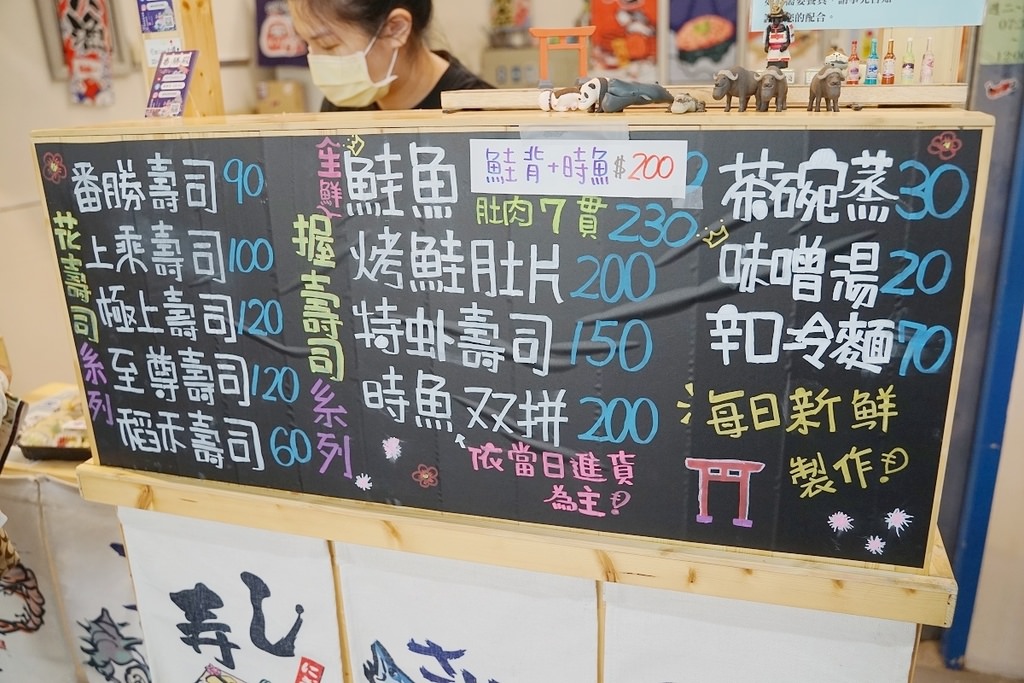 花壽司系列
番勝壽司 90
上乘壽司 100
極上壽司 120
至尊壽司 120
稻禾壽司 60
生鮮
握壽司系列
鮭魚
鮭背+時魚 $200
肚肉7貫 230
烤鮭肚片 200
特蚍壽司 150
時魚双拼 200
依當日進貨
為主!
茶碗蒸 30
味噌湯 20
辛口冷麵 70
每日新鮮
製作!
寿し